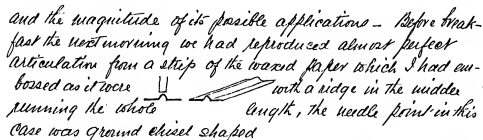 and the magnitude of its possible applications – Before break-
fast the next morning we had reproduced almost perfect
articulation from a strip of the waxed paper which I had em-
bossed as it were with a ridge in the middle
running the whole length, the needle point in this
case was ground chisel shaped